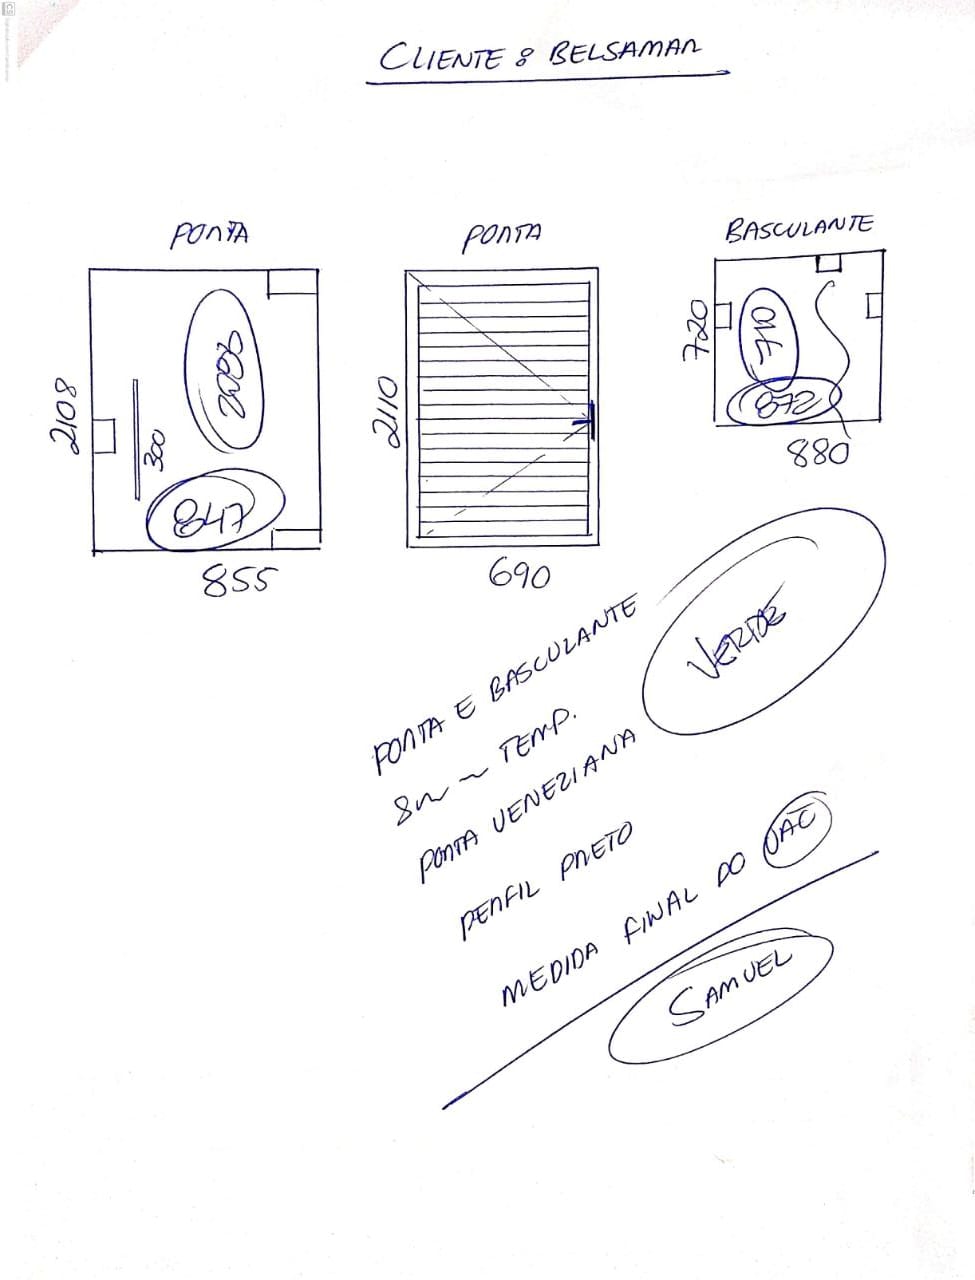 CLIENTE: BELSAMAR
PORTA
PORTA
BASCULANTE
2108
300
847
855
2110
690
720
710
872
880
VERDE
PORTA E BASCULANTE
8mm TEMP.
PORTA VENEZIANA
PERFIL PRETO
MEDIDA FINAL DO VÃO
SAMUEL